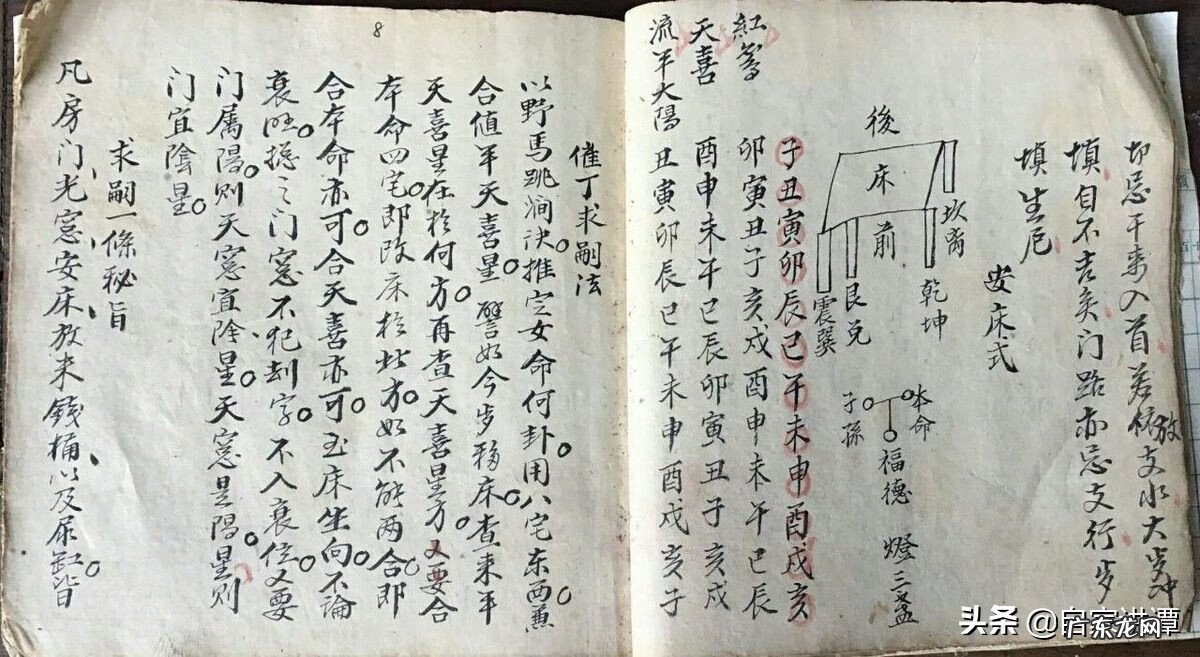 切忌干来入首若俯放支水大步冲
填自不吉矣门路亦忌支行步
填生危
安床式
後
床
前
坎离
乾坤
艮兑
震巽
本命
子孫
福德
燈三盏
子丑寅卯辰巳午未申酉戌亥
紅鸞 卯寅丑子亥戌酉申未午巳辰
天喜 酉申未午巳辰卯寅丑子亥戌
流年太陽 丑寅卯辰巳午未申酉戌亥子
8
催丁求嗣法
以野馬跳涧诀推定女命何卦用八宅东西兼
合值年天喜星譬如今步移床查来年
天喜星在於何方再查天喜星方又要合
本命四宅即改床於此方如不能两合即
合本命亦可合天喜亦可至床坐向不論
衰旺撼之门窓不犯刼字不入衰位又要
门属陽则天窓宜陰星天窓是陽星则
门宜陰星
求嗣一條秘旨
凡房门光窓安床放米錢桶以及尿缸皆
头条